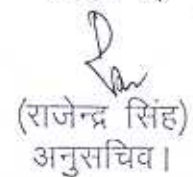 (राजेन्द्र सिंह)
अनुसचिव।